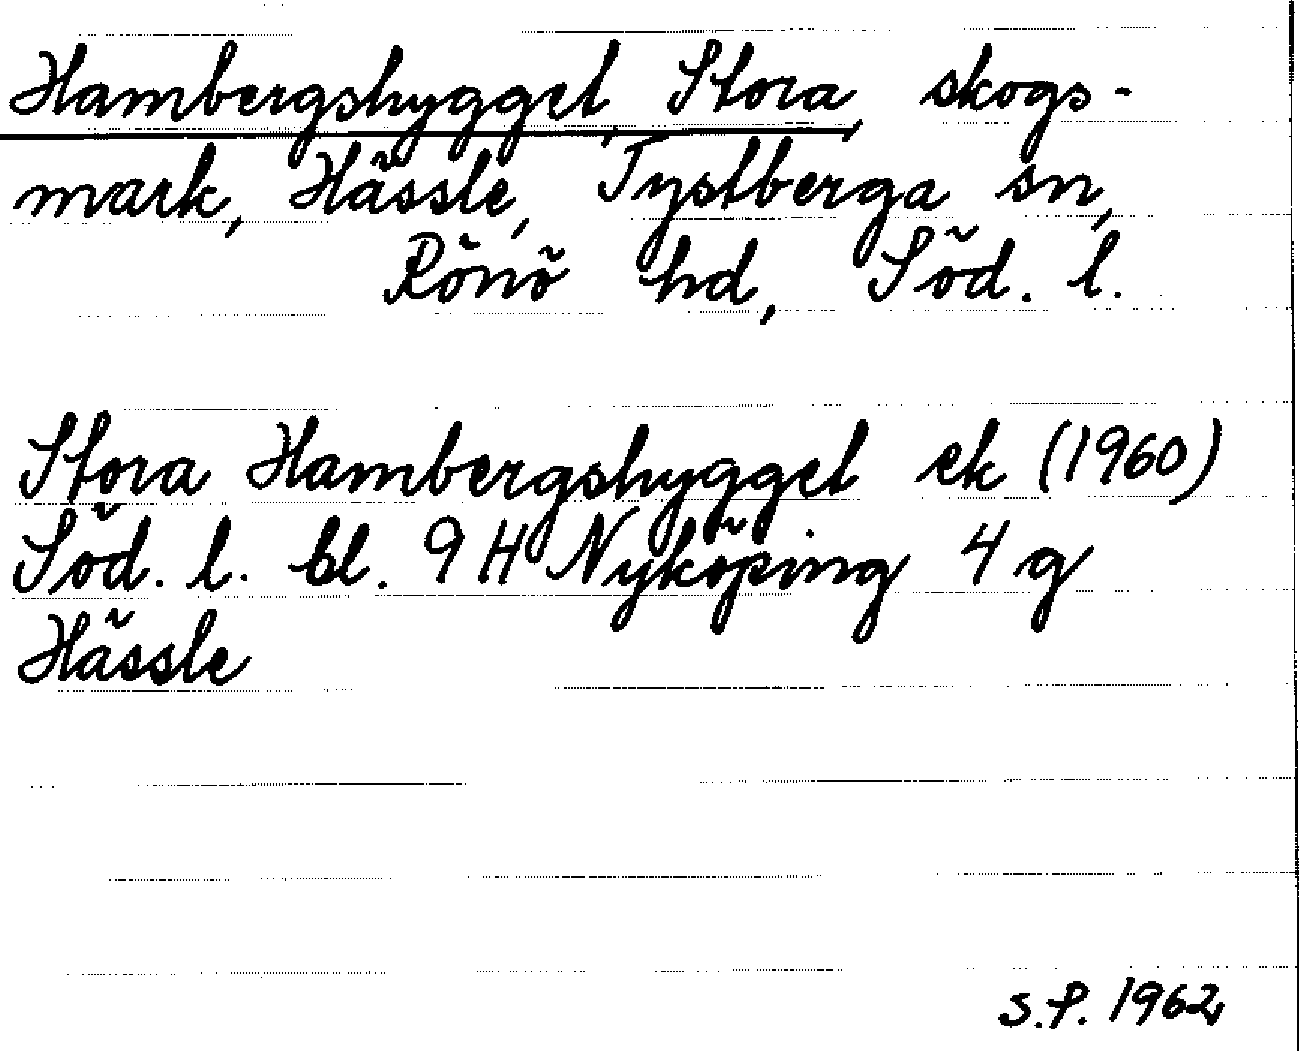 Hambergshygget, Stora, skogs-
mark, Hässle, Tystberga sn,
Rönö hd, Söd. l.
Stora Hambergshygget ek (1960)
Söd. l. bl. 9 H Nyköping 4 g
Hässle
S.P. 1962